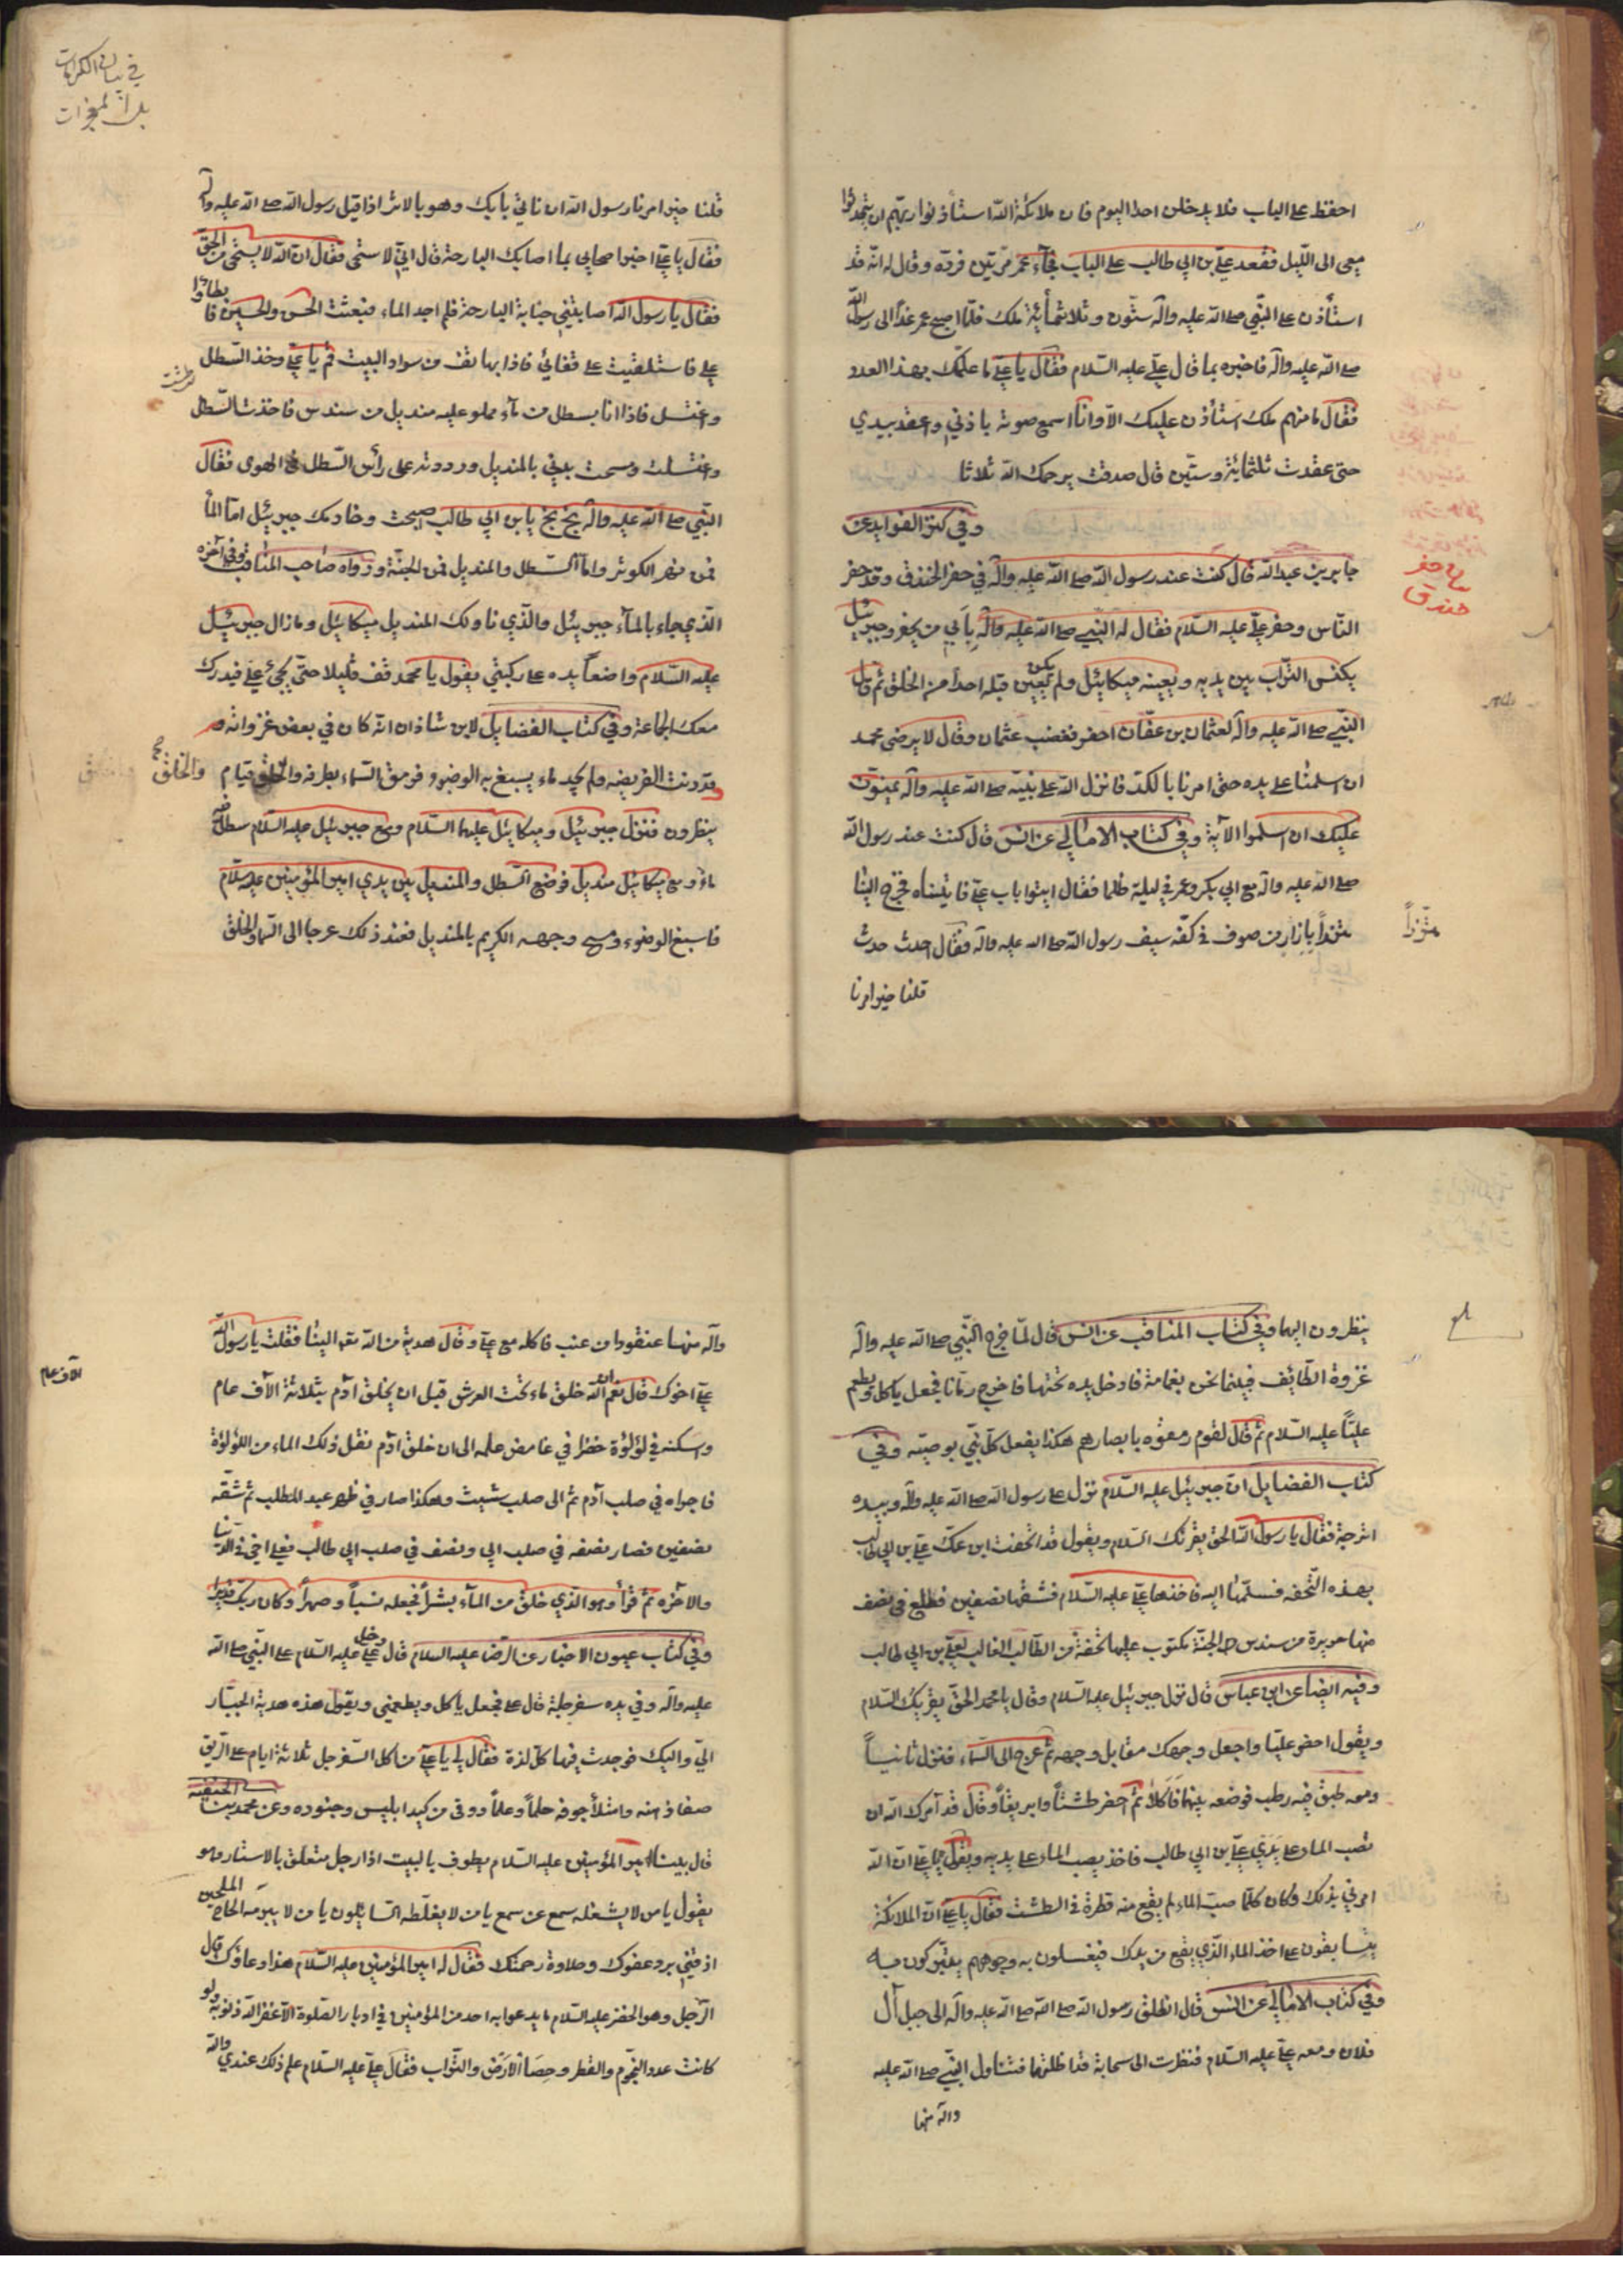 احفظ على الباب فلا يدخلن احد اليوم فان ملائكة الله استأذنوا ربهم ان يتحدثوا
معى الى الليل فقعد علي بن ابي طالب على الباب فجآء عمر مرتين فردّه وقال له انه قد
استأذن على النبي صلى الله عليه وآله ستون وثلاثمأئة ملك فلمّا اصبح عمر غدا الى رسول الله
صلى الله عليه وآله فاخبره بما قال علي عليه السلام فقال يا علي ما علمك بهذا العدد
فقال ما منهم ملك استأذن عليك الا وانا اسمع صوته باذني واعقد بيدي
حتى عقدت ثلثمائة وستين قال صدقت يرحمك الله ثلاثا
وفي كنز الفوايد عن
جابر بن عبد الله قال كنت عند رسول الله صلى الله عليه وآله في حفر الخندق وقد حفر
الناس وحفر علي عليه السلام فقال له النبي صلى الله عليه وآله بأبي من يحفر وجبرئيل
يكنس التراب بين يديه ويعينه ميكائيل ولم يكن يعين قبله احدا من الخلق ثم قال
النبي صلى الله عليه وآله لعثمان بن عفان احفر فغضب عثمان وقال لا يرضى محمد
ان اسلمنا على يده حتى امرنا بالكد فانزل الله على نبيه صلى الله عليه وآله يمنون
عليك ان اسلموا الآية وفي كتاب الامالي عن انس قال كنت عند رسول الله
صلى الله عليه وآله مع ابي بكر وعمر في ليلة ظلما فقال ايتوا باب علي فاتيناه فخرج الينا
متزراً بازار من صوف في كفه سيف رسول الله صلى الله عليه وآله فقال احدث حدث
متزراً
قلنا خير امرنا
في بيان الكرامات
بل المعجزات
قلنا خير امرنا رسول الله ان نأتي بابك وهو بالاثر اذا قيل رسول الله صلى الله عليه وآله
فقال يا علي اخبر اصحابي بما اصابك البارحة قال اني لاستحى فقال ان الله لا يستحى من الحق
فقال يا رسول الله اصابتني جنابة البارحة فلم اجد الماء فبعثت الحسن والحسين فابطاوا
علي فاستلقيت على قفائي فاذا بهاتف من سواد البيت قم يا علي وخذ السطل
واغتسل فاذا انا بسطل من مآء مملو عليه منديل من سندس فاخذت السطل
واغتسلت ومسحت بدني بالمنديل ورددته على رأس السطل في الهوى فقال
النبي صلى الله عليه وآله بخ بخ يا بن ابي طالب اصبحت وخادمك جبرئيل اما المآ
فمن نهر الكوثر واما السطل والمنديل فمن الجنة ورواه صاحب المناقب وفي آخره
الذي جاء بالمآء جبرئيل والذي ناولك المنديل ميكائيل وما زال جبرئيل
عليه السلام واضعاً يده على ركبتي يقول يا محمد قف قليلا حتى يجئ علي فيدرك
معك الجماعة وفي كتاب الفضايل لابن شاذان انه كان في بعض غزواته
وقد دنت الفريضه ولم يجد ماء يسبغ به الوضوء فرمق السماء بطرفه والخلق قيام
والخلق
ينظرون فنزل جبرئيل وميكائيل عليهما السلام ومع جبرئيل عليه السلام سطل فيه
ماء ومع ميكائيل منديل فوضع السطل والمنديل بين يدي امير المؤمنين عليه السلام
فاسبغ الوضوء ومسح وجهه الكريم بالمنديل فعند ذلك عرجا الى السماء والخلق
ينظرون اليهما وفي كتاب المناقب عن انس قال لما خرج النبي صلى الله عليه وآله
غزوة الطائف فبينما نحن بغمامة فادخل يده تحتها فاخرج رمانا فجعل يأكل ويطعم
علياً عليه السلام ثم قال لقوم رمقوه بابصارهم هكذا يفعل كل نبي بوصيه وفي
كتاب الفضايل ان جبرئيل عليه السلام نزل على رسول الله صلى الله عليه وآله وبيده
اترجة فقال يا رسول الله الحق يقرئك السلام ويقول قد اتحفت ابن عمك علي بن ابي طالب
بهذه التحفه فسلمها اليه فاخذها علي عليه السلام فشقها نصفين فطلع في نصف
منها حريرة من سندس الجنة مكتوب عليها تحفة من الطالب الغالب لعلي بن ابي طالب
وفيه ايضا عن ابن عباس قال نزل جبرئيل عليه السلام وقال يا محمد الحق يقريك السلام
ويقول احضر عليا واجعل وجهك مقابل وجهه ثم عرج الى السماء فنزل ثانياً
ومعه طبق فيه رطب فوضعه بينهما فاكلا ثم احضر طشتاً وابريقاً وقال قد آمرك الله ان
تصب الماء على يدي علي بن ابي طالب فاخذ يصب الماء على يديه ويقول يا علي ان الله
امرني بذلك وكان كلما صب الماء لم يقع منه قطرة في الطشت فقال يا علي ان الملائكة
يتسابقون على اخذ الماء الذي يقع من يدك فيغسلون به وجوههم يتبركون به
وفي كتاب الامالي عن انس قال انطلق رسول الله صلى الله عليه وآله الى جبل آل
فلان ومعه علي عليه السلام فنظرت الى سحابة قد اظلتهما فتناول النبي صلى الله عليه
وآله منها
وآله منها عنقودا من عنب فاكله مع علي وقال هدية من الله تعالى الينا فقلت يا رسول الله
علي اخوك قال نعم ان الله خلق ماء تحت العرش قبل ان يخلق آدم بثلاثة آلاف عام
آلاف عام
واسكنه في لؤلؤة خضرا في غامض علمه الى ان خلق آدم نقل ذلك الماء من اللؤلؤة
فاجراه في صلب آدم ثم الى صلب شيث وهكذا صار في ظهر عبد المطلب ثم شقه
نصفين فصار نصفه في صلب ابي ونصف في صلب ابي طالب فعلي اخي في الدنيا
والآخره ثم قرأ وهو الذي خلق من المآء بشراً فجعله نسباً وصهراً وكان ربك قديرا
وفي كتاب عيون الاخبار عن الرضا عليه السلام قال دخل علي عليه السلام على النبي صلى الله
عليه وآله وفي يده سفرجلة قال علي فجعل يأكل ويطعمني ويقول هذه هدية الجبار
الي واليك فوجدت فيها كل لذة فقال لي يا علي من اكل السفرجل ثلاثة ايام على الريق
صفا ذهنه وامتلأ جوفه حلماً وعلماً ووقى من كيد ابليس وجنوده وعن محمد بن الحنفيه
قال بينا امير المؤمنين عليه السلام يطوف بالبيت اذا رجل متعلق بالاستار وهو
يقول يا من لا يشغله سمع عن سمع يا من لا يغلطه السايلون يا من لا يبرمه الحاح الملحين
اذقني برد عفوك وحلاوة رحمتك فقال له امير المؤمنين عليه السلام هذا دعاؤك قال
الرجل وهو الخضر عليه السلام ما يدعو به احد من المؤمنين في ادبار الصلوة الا غفر الله ذنوبه ولو
كانت عدد النجوم والقطر وحصا الارض والتراب فقال علي عليه السلام علم ذلك عندي والله